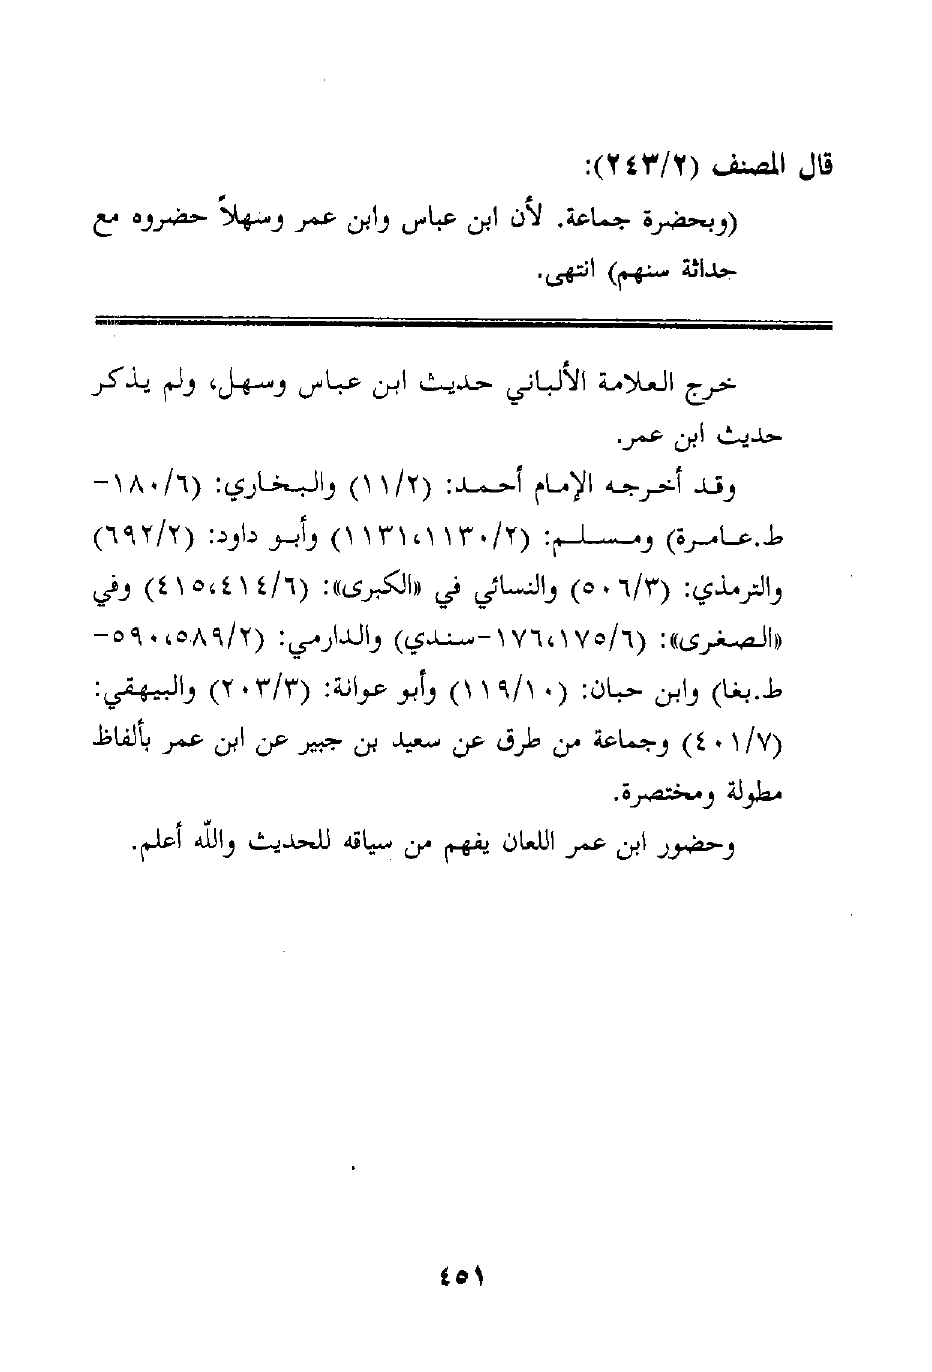 قال المصنف (٢٤٣/٢):
(وبحضرة جماعة. لأن ابن عباس وابن عمر وسهلاً حضروه مع
حداثة سنهم) انتهى.
خرج العلامة الألباني حديث ابن عباس وسهل، ولم يذكر
حديث ابن عمر.
وقد أخرجه الإمام أحمد: (١١/٢) والبخاري: (١٨٠/٦-
ط.عامرة) ومسلم: (١١٣١،١١٣٠/٢) وأبو داود: (٦٩٢/٢)
والترمذي: (٥٠٦/٣) والنسائي في «الكبرى»: (٤١٥،٤١٤/٦) وفي
«الصغرى»: (١٧٦،١٧٥/٦-سندي) والدارمي: (٥٩٠،٥٨٩/٢-
ط.بغا) وابن حبان: (١١٩/١٠) وأبو عوانة: (٢٠٣/٣) والبيهقي:
(٤٠١/٧) وجماعة من طرق عن سعيد بن جبير عن ابن عمر بألفاظ
مطولة ومختصرة.
وحضور ابن عمر اللعان يفهم من سياقه للحديث والله أعلم.
٤٥١